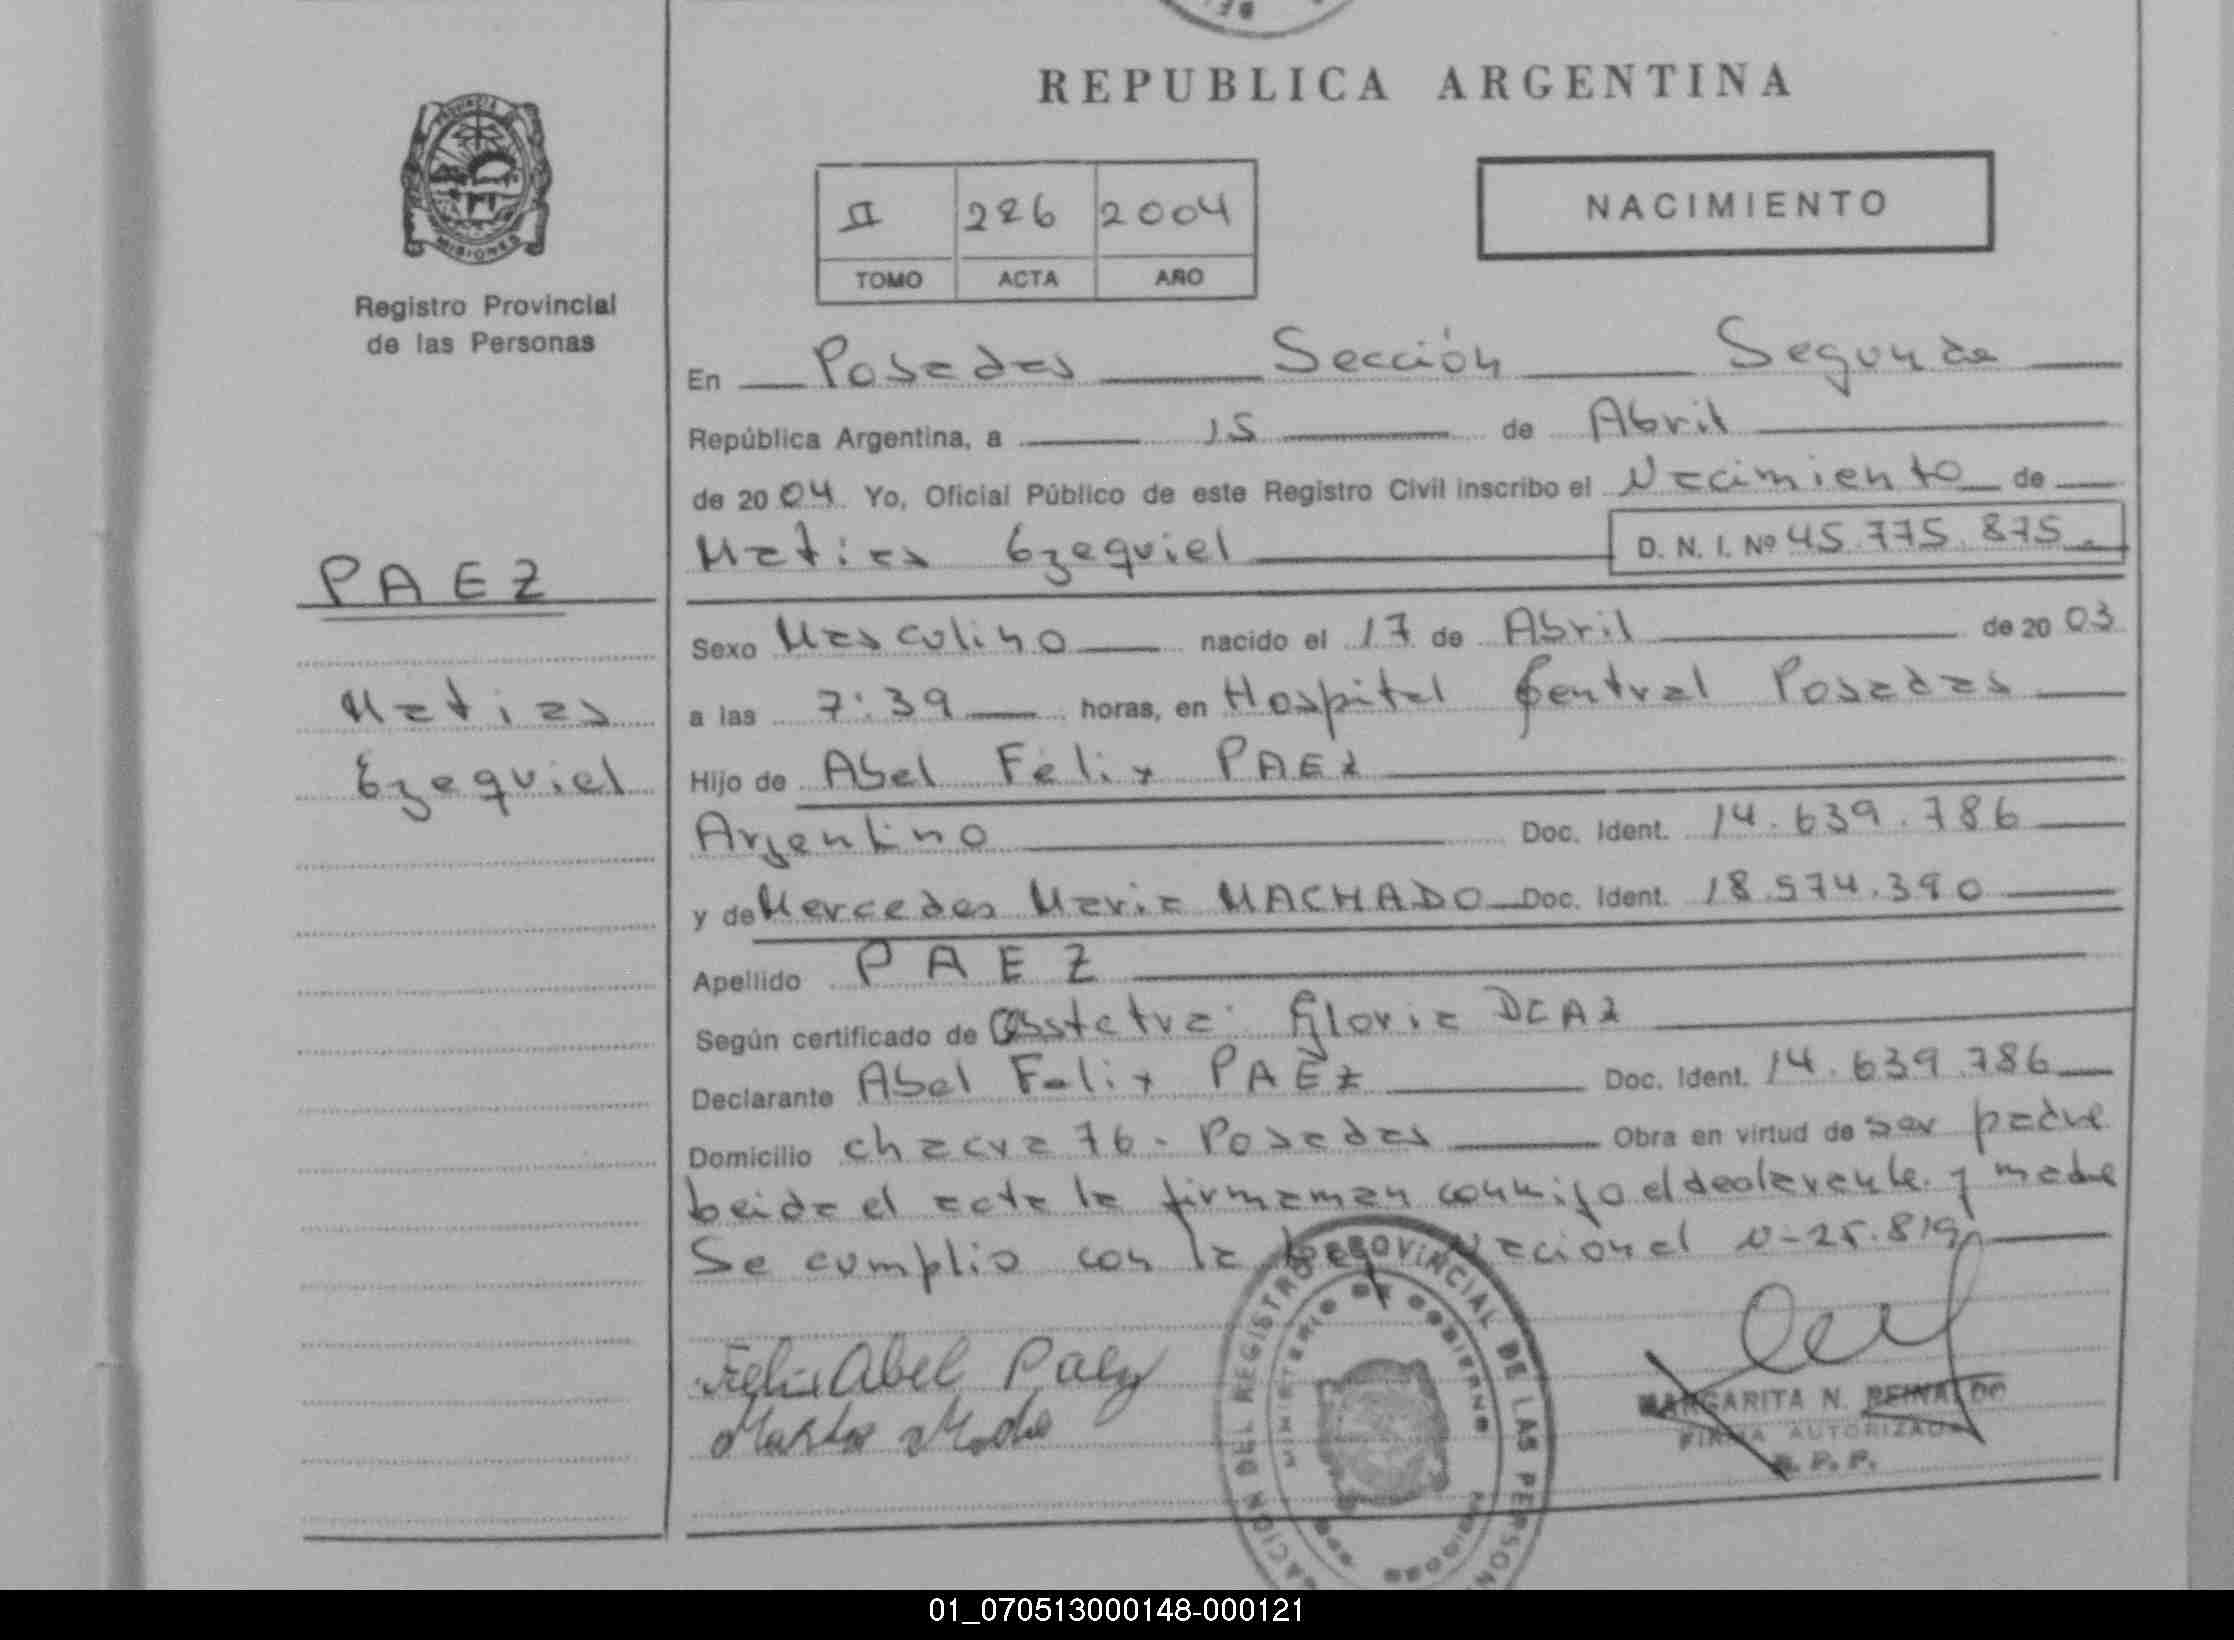 REPUBLICA ARGENTINA
PROVINCIA
MISIONES
Registro Provincial
de las Personas
II 226 2004
TOMO ACTA AÑO
NACIMIENTO
En Posadas Sección Segunda
República Argentina, a 15 de Abril
de 2004. Yo, Oficial Público de este Registro Civil inscribo el Nacimiento de
Matias Ezequiel D. N. I. Nº 45.775.875.
PAEZ
Matias
Ezequiel
Sexo Masculino nacido el 17 de Abril de 2003
a las 7:39 horas, en Hospital Central Posadas
Hijo de Abel Felix PAEZ
Argentino Doc. Ident. 14.639.786
y de Mercedes Maria MACHADO Doc. Ident. 18.574.390
Apellido PAEZ
Según certificado de Obstetra: Gloria DIAZ
Declarante Abel Felix PAEZ Doc. Ident. 14.639.786
Domicilio chacra 76 - Posadas Obra en virtud de ser padre
Leida el acta la firmaman conmigo el declarante y madre
Se cumplio con la Ley Nacional n-25.819
Felix Abel Paez
MARGARITA N. REINALDO
FIRMA AUTORIZADA
R. P. P.
DEL REGISTRO PROVINCIAL DE LAS PERSON
MINISTERIO DE GOBIERNO
MISIONES
01_070513000148-000121